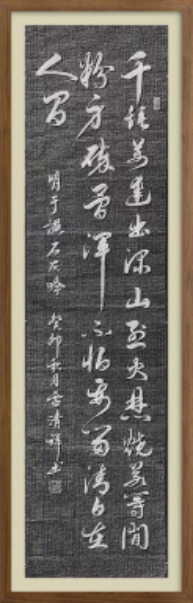 千錘萬鑿出深山烈火焚燒若等閒
粉身碎骨渾不怕要留清白在
人間
明于謙石灰吟 癸卯秋月清祥书